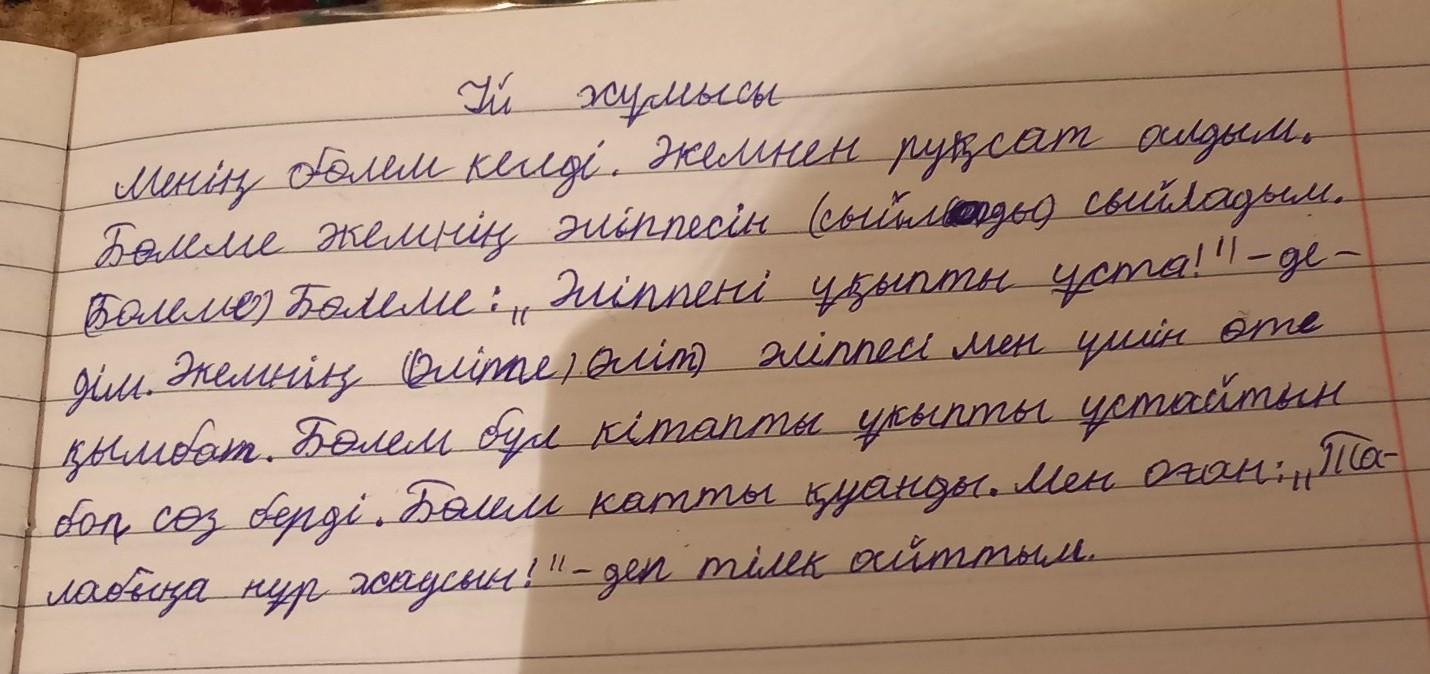 Үй жұмысы
Менің бөлем келді. Әжемнен рұқсат алдым.
Бөлеме әжемнің әліппесін (сыйлады) сыйладым.
(Бөлеме) Бөлеме: „Әліппені ұқыпты ұста!" - де-
дім. Әжемнің (әліппе) (әліп) әліппесі мен үшін өте
қымбат. Бөлем бұл кітапты ұкыпты ұстайтын
боп сөз берді. Бөлем катты қуанды. Мен оған: „Та-
лабыңа нұр жаусын!" - деп тілек айттым.